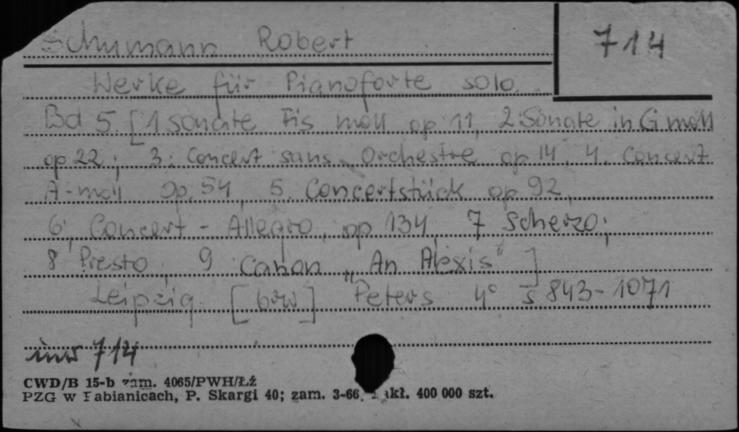 Schumann Robert
714
Werke für Pianoforte solo
Bd 5. [1 Sonate Fis moll op 11, 2 Sonate in G moll
op 22; 3: Concert sans Orchestre op 14. 4. Concert
A-moll Op. 54, 5. Concertstück op 92,
6, Concert - Allegro, op 134, 7 Scherzo;
8 Presto, 9 Canon "An Alexis"]
Leipzig [brw] Peters 4° s 843-1071
inw 714
CWD/B 15-b zam. 4065/PWH/Łź
PZG w Pabianicach, P. Skargi 40; zam. 3-66, nakł. 400 000 szt.